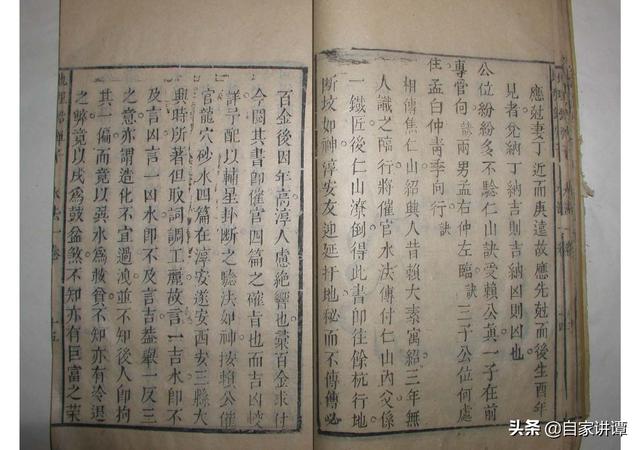 應姙妻丁近而庚遠故應先姙而後生酉年
見者兌納丁納吉則吉納凶則凶也
公位紛紛多不驗仁山訣受賴公真一子在前
專管向訣兩男孟右仲左臨訣三子公位何處
住孟白仲青季向行訣
相傳焦仁山紹興人昔賴大素寓紹三年無
人識之臨行將催官水法傳付仁山內父係
一鐵匠後仁山潦倒得此書即往餘杭行地
斷坟如神淳安友迎延扞地秘而不傳傳必
百金後因年高淳人慮絕響也彙百金求付
今閱其書即催官四篇之確旨也而吉凶
詳于配以輔星卦斷之驗法如神按賴公催
官龍穴砂水四篇在淳安遂安西安三縣大
興時所著但取詞調工麗故言一吉水即不
及言凶言一凶水即不及言吉葢舉一反三
之意亦謂造化不宜過洩並不知後人即拘
其一偏而竟以巽水為救貧不知亦有冷退
之弊竟以戌為鼓盆煞不知亦有巨富之榮
水法一卷
十五
头条 @自家讲谭